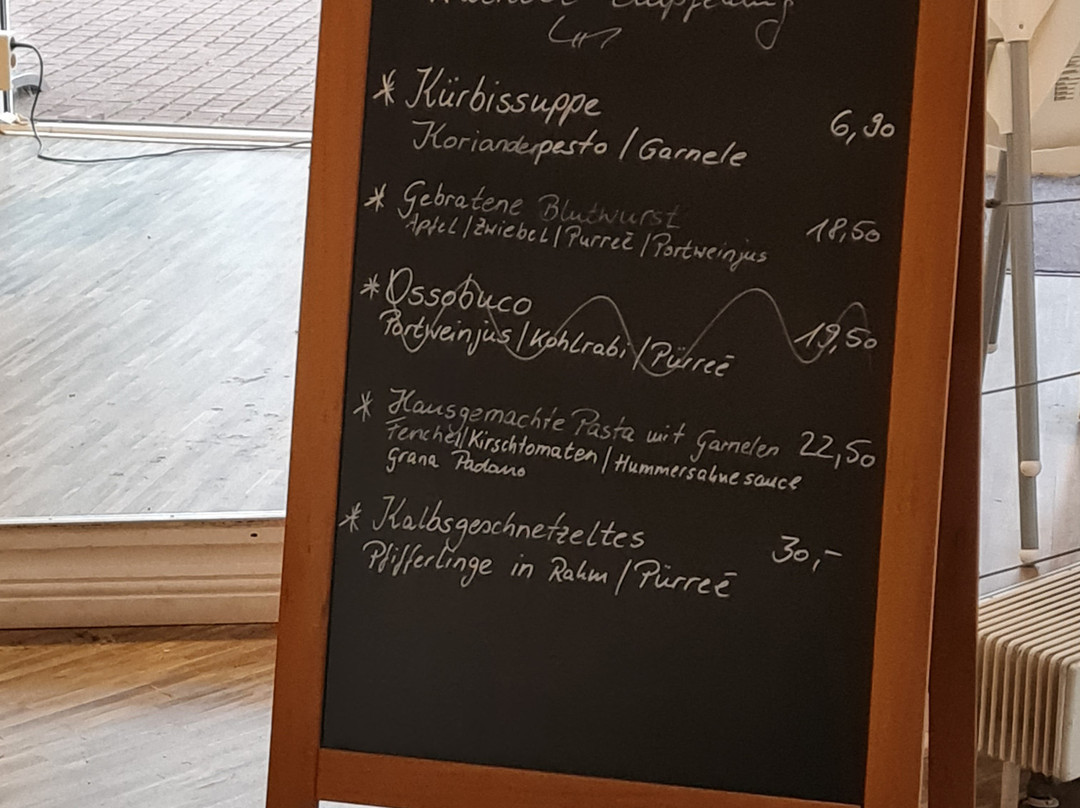 Empfehlung
* Kürbissuppe 6,90
Korianderpesto / Garnele
* Gebratene Blutwurst 18,50
Apfel / Zwiebel / Pürreè / Portweinjus
* Ossobuco 19,50
Portweinjus / Kohlrabi / Pürreè
* Hausgemachte Pasta mit Garnelen 22,50
Fenchel / Kirschtomaten / Hummersahnesauce
Grana Padano
* Kalbsgeschnetzeltes 30,-
Pfifferlinge in Rahm / Pürreè